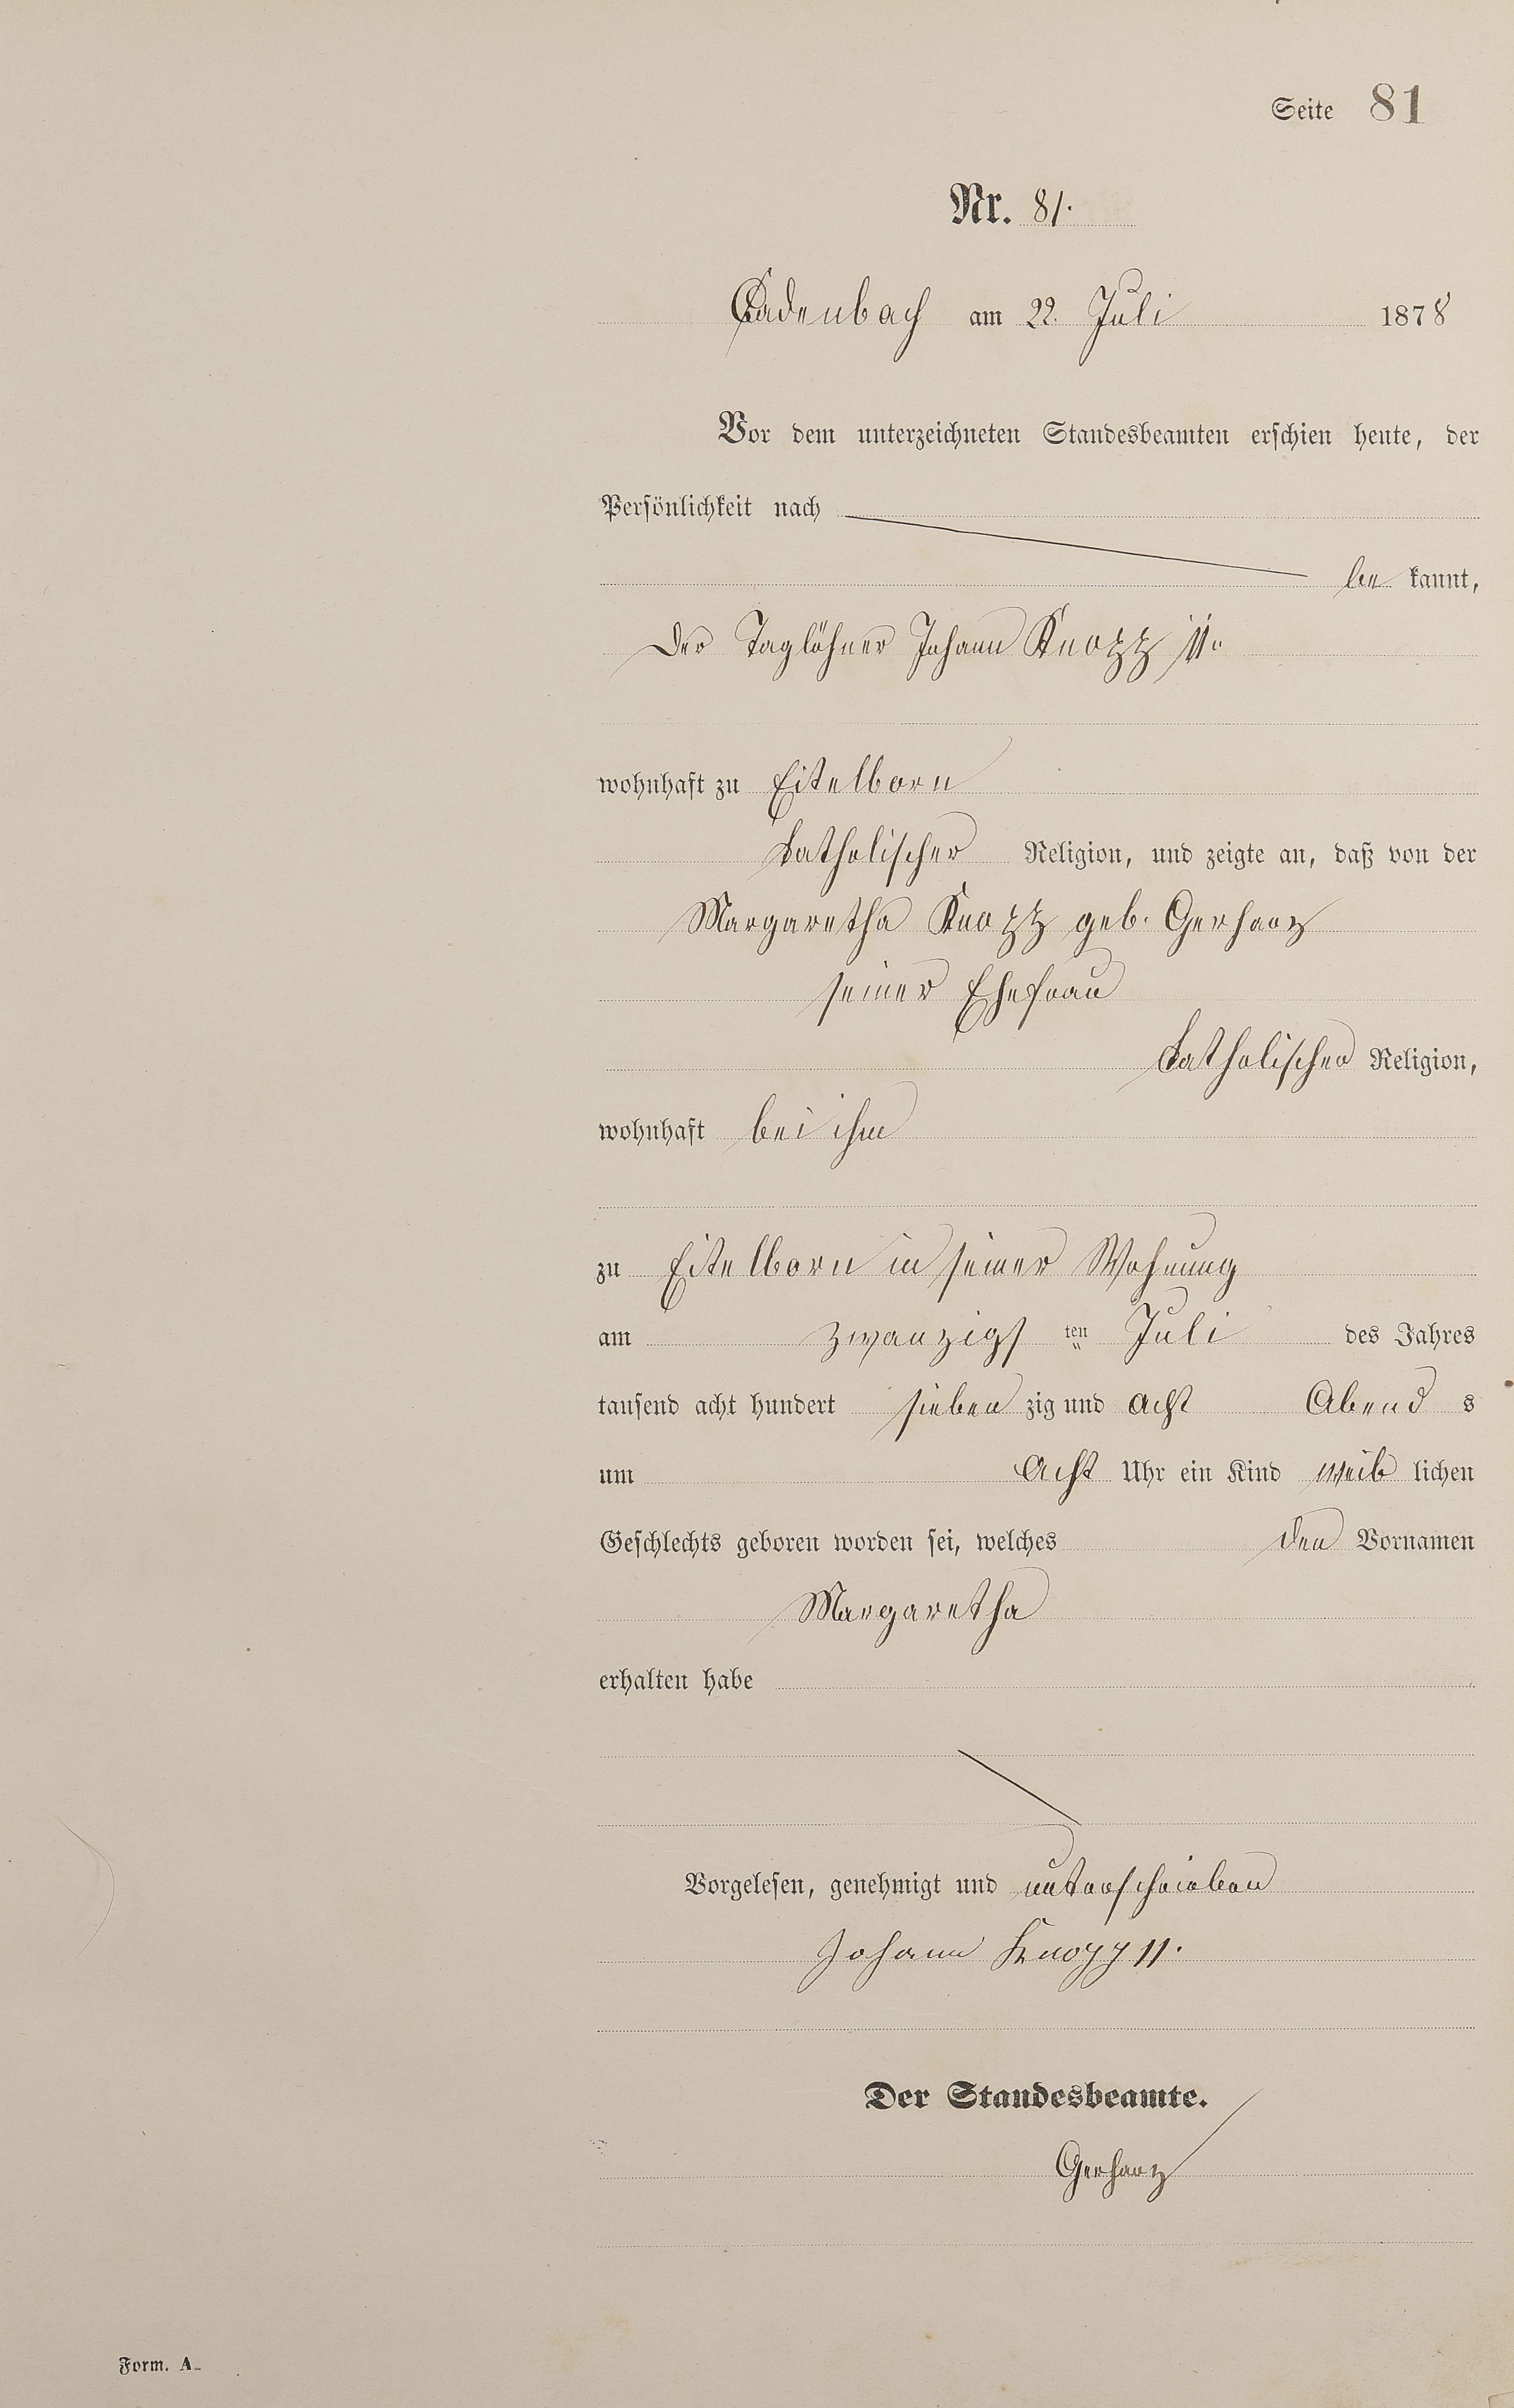 Seite 81
Nr. 81.
Cadenbach am 22. Juli 1878
Vor dem unterzeichneten Standesbeamten erschien heute, der
Persönlichkeit nach
be kannt,
der Taglöhner Johann Knopp II.
wohnhaft zu Eitelborn
katholischer Religion, und zeigte an, daß von der
Margaretha Knopp geb. Gerharz
seiner Ehefrau
katholischer Religion,
wohnhaft bei ihm
zu Eitelborn in seiner Wohnung
am zwanzigs ten Juli des Jahres
tausend acht hundert sieben zig und acht Abend s
um acht Uhr ein Kind weib lichen
Geschlechts geboren worden sei, welches den Vornamen
Margaretha
erhalten habe
Vorgelesen, genehmigt und unterschrieben
Johann Knopp II.
Der Standesbeamte.
Gerharz
Form. A.